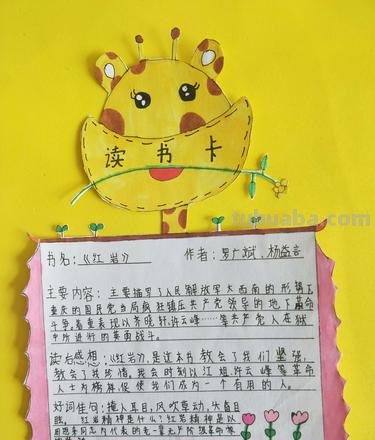 读书卡
tuhuaba.com
书名：《红岩》 作者：罗广斌、杨益言
主要内容：主要描写了人民解放军大西南的形势下
重庆的国民党当局疯狂镇压共产党领导的地下革命
斗争，着重表现以齐晓轩，许云峰……等共产党人在狱
中所进行的英勇战斗。
读后感想：《红岩》，是这本书教会了我们坚强，
教会了我珍惜。我会时刻以江姐，许云峰等革命
人士为榜样，促使我们成为一个有用的人。
好词佳句：掩人耳目，风吹草动，
红岩精神是什么？红岩精神是以